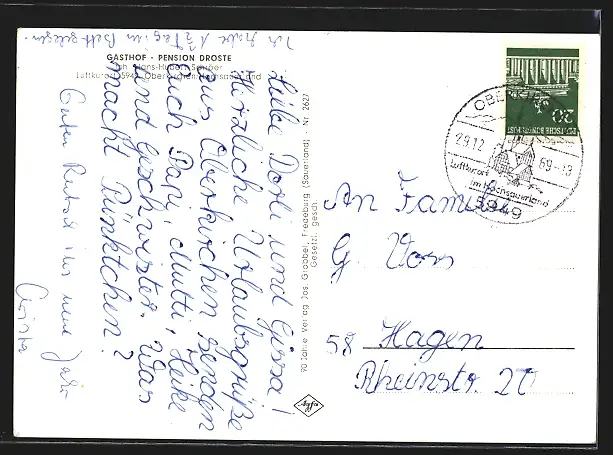 Ich habe 1½ Tag im Bett gelegen.
GASTHOF · PENSION DROSTE
Inh. Hans-Hubert
Luftkurort 5949 Oberkirchen/Hochsauerland
Liebe Dorli und Gissa!
Herzliche Urlaubsgrüße
aus Oberkirchen senden
Euch Papi, Mutti, Heike
und Geschwister. Was
macht Pünktchen?
Guten Rutsch ins neue Jahr
Christa
90 Jahre Verlag Jos. Grobbel, Fredeburg (Sauerland) · Nr. 2627
Gesetzl. gesch.
Agfa
20
DEUTSCHE BUNDESPOST
OBERKIRCHEN
29.12.69-18
Luftkurort
im Hochsauerland
5949
An Familie
G. Voss
58 Hagen
Rheinstr. 20